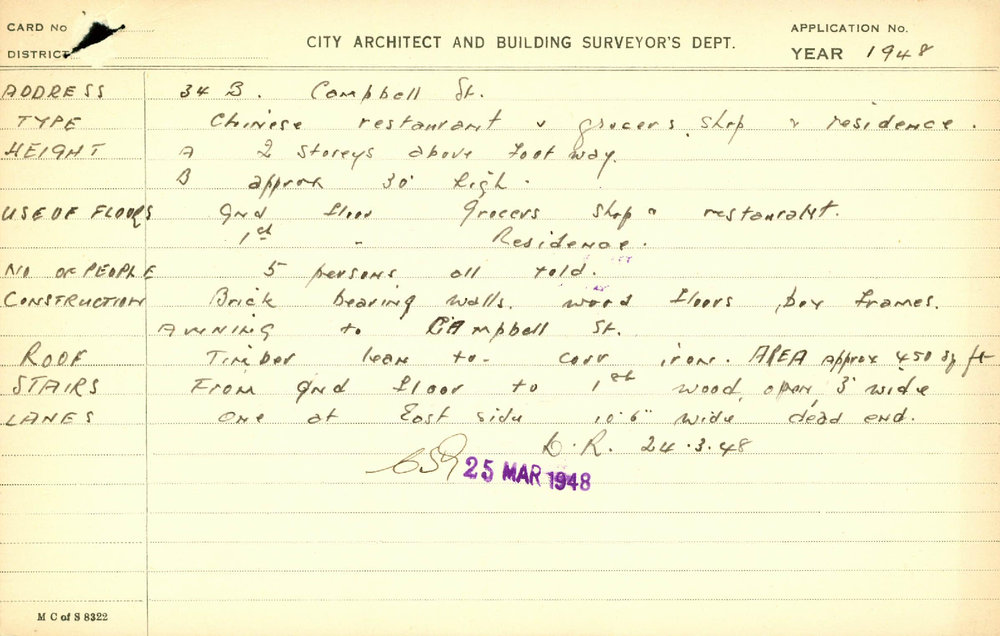 CARD No
DISTRICT
CITY ARCHITECT AND BUILDING SURVEYOR'S DEPT.
APPLICATION No.
YEAR 1948
ADDRESS 34 B. Campbell St.
TYPE Chinese restaurant & grocers shop & residence.
HEIGHT A 2 storeys above footway.
B approx 30' high.
USE OF FLOORS Gnd floor Grocers shop & restaurant.
1st - Residence.
No OF PEOPLE 5 persons all told.
CONSTRUCTION Brick bearing walls. wood floors box frames.
AWNING to CAmpbell St.
ROOF Timber lean to - corr iron. AREA approx 450 sq ft
STAIRS From gnd floor to 1st wood, open, 3' wide
LANES One at East side 10'6" wide dead end.
D.R. 24.3.48
25 MAR 1948
M C of S 8322